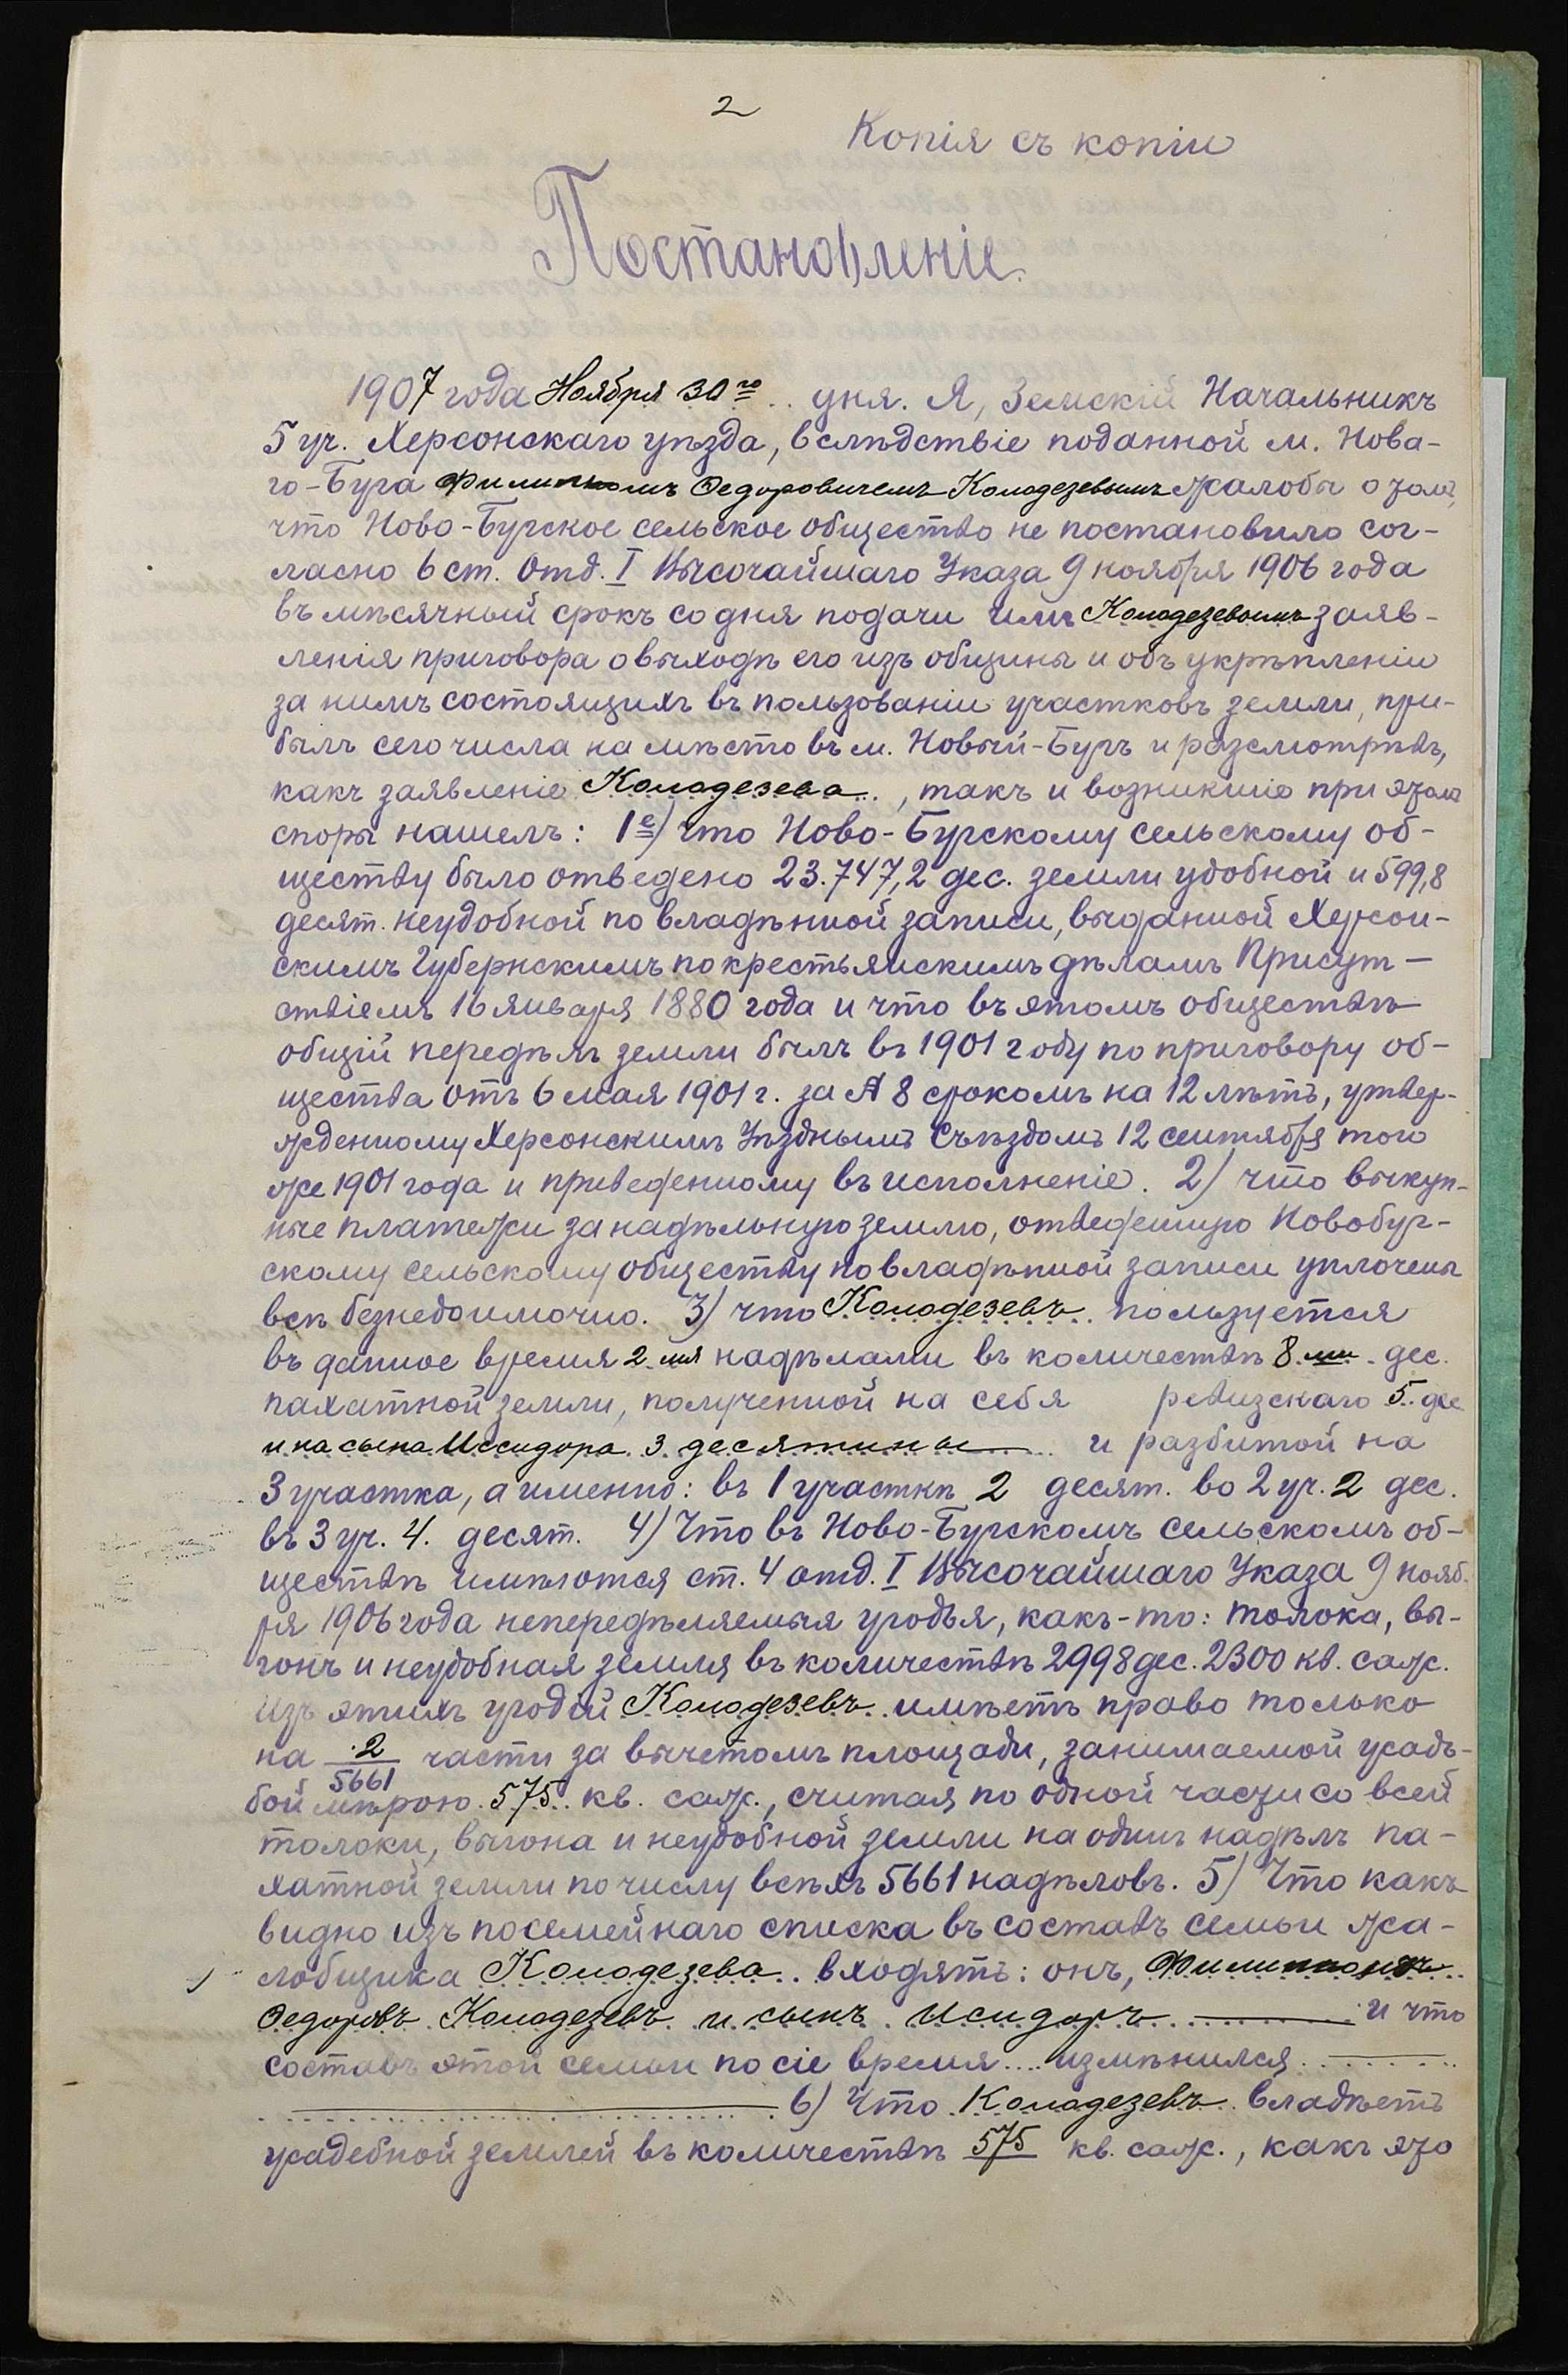 2
Копія съ копіи
Постановленіе.
1907 года Ноября 30го дня. Я, Земскій Начальникъ
5 уч. Херсонскаго уѣзда, вслѣдствіе поданной м. Нова-
го-Буга Филимономъ Ѳедоровичемъ Колодезевымъ жалобы о томъ,
что Ново-Бугское сельское общество не постановило сог-
ласно 6 ст. Отд. I Высочайшаго Указа 9 ноября 1906 года
въ мѣсячный срокъ со дня подачи имъ Колодезевымъ заяв-
ленія приговора о выходѣ его изъ общины и объ укрѣпленіи
за нимъ состоящихъ въ пользованіи участковъ земли, при-
былъ сего числа на мѣсто въ м. Новый-Бугъ и разсмотрѣвъ,
какъ заявленіе Колодезева, такъ и возникшіе при этомъ
споры нашелъ: 1е) что Ново-Бугскому сельскому об-
ществу было отведено 23.747,2 дес. земли удобной и 599,8
десят. неудобной по владѣнной записи, выданной Херсон-
скимъ Губернскимъ по крестьянскимъ дѣламъ Присут-
ствіемъ 16 января 1880 года и что въ этомъ обществѣ
общій передѣлъ земли былъ въ 1901 году по приговору об-
щества отъ 6 мая 1901 г. за № 8 срокомъ на 12 лѣтъ, утвер-
жденному Херсонскимъ Уѣзднымъ Съѣздомъ 12 сентября того
же 1901 года и приведенному въ исполненіе. 2) что выкуп-
ные платежи за надѣльную землю, отведенную Новобуг-
скому сельскому обществу по владѣнной записи уплочены
всѣ безнедоимочно. 3) что Колодезевъ пользуется
въ данное время 2-мя надѣлами въ количествѣ 8-ми дес.
пахатной земли, полученной на себя ревизскаго 5 дес
и на сына Иссидора 3 десятины и разбитой на
3 участка, а именно: въ 1 участкѣ 2 десят. во 2 уч. 2 дес.
въ 3 уч. 4. десят. 4) Что въ Ново-Бугскомъ сельскомъ об-
ществѣ имѣются ст. 4 отд. I Высочайшаго Указа 9 нояб-
ря 1906 года непередѣляемыя угодья, какъ-то: толока, вы-
гонъ и неудобная земля въ количествѣ 2998 дес. 2300 кв. саж.
Изъ этихъ угодій Колодезевъ имѣетъ право только
на 2/5661 части за вычетомъ площади, занимаемой усадь-
бой мѣрою 575 кв. саж., считая по одной части со всей
толоки, выгона и неудобной земли на одинъ надѣлъ па-
хатной земли по числу всѣхъ 5661 надѣловъ. 5) Что какъ
видно изъ посемейнаго списка въ составъ семьи жа-
лобщика Колодезева входятъ: онъ, Филимонъ
Ѳедоровъ Колодезевъ и сынъ Исидоръ и что
составъ этой семьи по сіе время измѣнился
6) Что Колодезевъ владѣетъ
усадебной землей въ количествѣ 575 кв. саж., какъ это